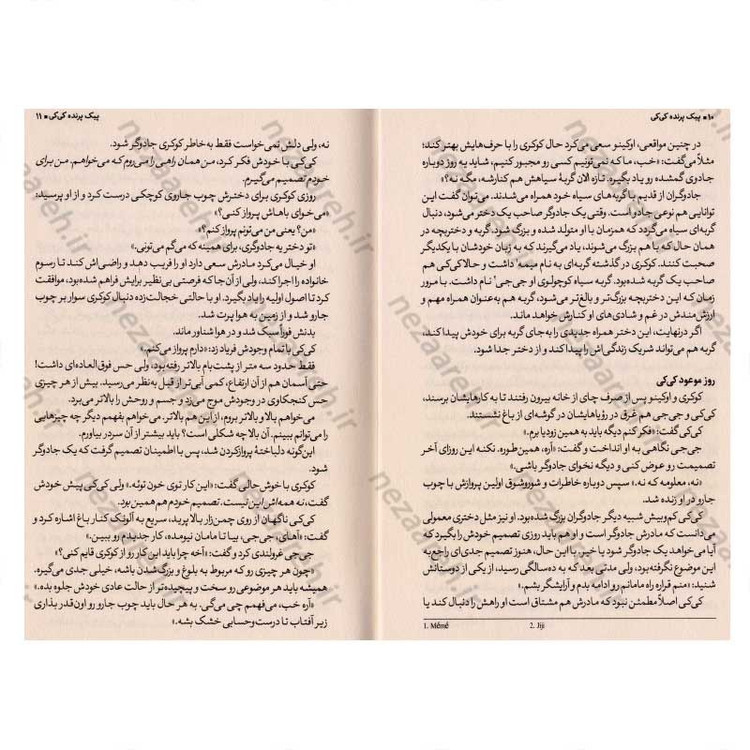 ۱۰ ■ پیک پرنده کی‌کی
در چنین مواقعی، اوکینو سعی می‌کرد حال کوکری را با حرف‌هایش بهتر کند؛
مثلاً می‌گفت: «خب، ما که نمی‌تونیم کسی رو مجبور کنیم، شاید یه روز دوباره
جادوی گمشده رو یاد بگیرد. تازه الان گربهٔ سیاهش هم کنارشه، مگه نه؟»
جادوگران از قدیم با گربه‌های سیاه خود همراه می‌شدند. می‌توان گفت این
توانایی هم نوعی جادو است. وقتی یک جادوگر صاحب یک دختر می‌شود، دنبال
گربه‌ای سیاه می‌گردد که همزمان با او متولد شده و بزرگ شود. گربه و دختربچه در
همان حال که با هم بزرگ می‌شوند، یاد می‌گیرند که به زبان خودشان با یکدیگر
صحبت کنند. کوکری در گذشته گربه‌ای به نام میمه¹ داشت و حالا کی‌کی هم
صاحب یک گربه شده‌بود. گربه سیاه کوچولوی او جی‌جی² نام داشت. با مرور
زمان که این دختربچه بزرگ‌تر و بالغ‌تر می‌شود، گربه هم به‌عنوان همراه مهم و
ارزشمندش در غم و شادی‌های او کنارش خواهد ماند.
اگر درنهایت، این دختر همراه جدیدی را به‌جای گربه برای خودش پیدا کند،
گربه هم می‌تواند شریک زندگی‌اش را پیدا کند و از دختر جدا شود.
روز موعود کی‌کی
کوکری و اوکینو پس از صرف چای از خانه بیرون رفتند تا به کارهایشان برسند،
کی‌کی و جی‌جی هم غرق در رؤیاهایشان در گوشه‌ای از باغ نشستند.
کی‌کی گفت: «فکر کنم دیگه باید به همین زودیا برم.»
جی‌جی نگاهی به او انداخت و گفت: «آره، همین‌طوره. نکنه این روزای آخر
تصمیمت رو عوض کنی و دیگه نخوای جادوگر باشی.»
«نه، معلومه که نه.» سپس دوباره خاطرات و شوروشوق اولین پروازش با چوب
جارو در او زنده شد.
کی‌کی کم‌وبیش شبیه دیگر جادوگران بزرگ شده‌بود. او نیز مثل دختری معمولی
می‌دانست که مادرش جادوگر است و او هم باید روزی تصمیم خودش را بگیرد که
آیا می‌خواهد یک جادوگر شود یا خیر. با این حال، هنوز تصمیم جدی‌ای راجع به
این موضوع نگرفته‌بود، ولی مدتی بعد که به ده‌سالگی رسید، از یکی از دوستانش
شنید: «منم قراره راه مامانم رو ادامه بدم و آرایشگر بشم.»
کی‌کی اصلاً مطمئن نبود که مادرش هم مشتاق است او راهش را دنبال کند یا
1. Mémé
2. Jiji
پیک پرنده کی‌کی ■ ۱۱
نه، ولی دلش نمی‌خواست فقط به خاطر کوکری جادوگر شود.
کی‌کی با خودش فکر کرد، من همان راهی را می‌روم که می‌خواهم. من برای
خودم تصمیم می‌گیرم.
روزی کوکری برای دخترش چوب جاروی کوچکی درست کرد و از او پرسید:
«می‌خوای باهاش پرواز کنی؟»
«من؟ یعنی من می‌تونم پرواز کنم؟»
«تو دختر یه جادوگری، برای همینه که می‌گم می‌تونی.»
او خیال می‌کرد مادرش سعی دارد او را فریب دهد و راضی‌اش کند تا رسوم
خانواده را اجرا کند، ولی از آن‌جا که فرصتی بی‌نظیر برایش فراهم شده‌بود، موافقت
کرد تا اصول اولیه را یاد بگیرد. او با حالتی خجالت‌زده دنبال کوکری سوار بر چوب
جارو شد و از زمین به هوا پرت شد.
بدنش فوراً سبک شد و در هوا شناور ماند.
کی‌کی با تمام وجودش فریاد زد: «دارم پرواز می‌کنم.»
فقط حدود سه متر از پشت‌بام بالاتر رفته‌بود، ولی حس فوق‌العاده‌ای داشت!
حتی آسمان هم از آن ارتفاع، کمی آبی‌تر از قبل به‌نظر می‌رسید. بیش از هر چیزی
حس کنجکاوی در وجودش موج می‌زد و جسم و روحش را بالاتر می‌برد.
می‌خواهم بالا و بالاتر بروم، از این هم بالاتر. می‌خواهم بفهمم دیگر چه چیزهایی
را می‌توانم ببینم. آن بالا چه شکلی است؟ باید بیشتر از آن سر در بیاورم.
این‌گونه دلباختهٔ پرواز کردن شد، پس با اطمینان تصمیم گرفت که یک جادوگر
شود.
کوکری با خوش‌حالی گفت: «این کار توی خون توئه.» ولی کی‌کی پیش خودش
گفت، نه همه‌اش این نیست. تصمیم خودم هم همین بود.
کی‌کی ناگهان از روی چمن‌زار بالا پرید، سریع به آلونک کنار باغ اشاره کرد و
گفت: «آهای، جی‌جی، بیا تا مامان نیومده، کار جدیدم رو ببین.»
جی‌جی غرولندی کرد و گفت: «آخه چرا باید این کار رو از کوکری قایم کنی؟»
«چون هر چیزی رو که مربوط به بلوغ و بزرگ شدن باشه، خیلی جدی می‌گیره.
همیشه باید هر موضوعی رو سخت و پیچیده‌تر از حالت عادی خودش جلوه بده.»
«آره خب، می‌فهمم چی می‌گی. به هر حال باید چوب جارو رو اون‌قدر بذاری
زیر آفتاب تا درست‌وحسابی خشک بشه.»
nezaareh.ir